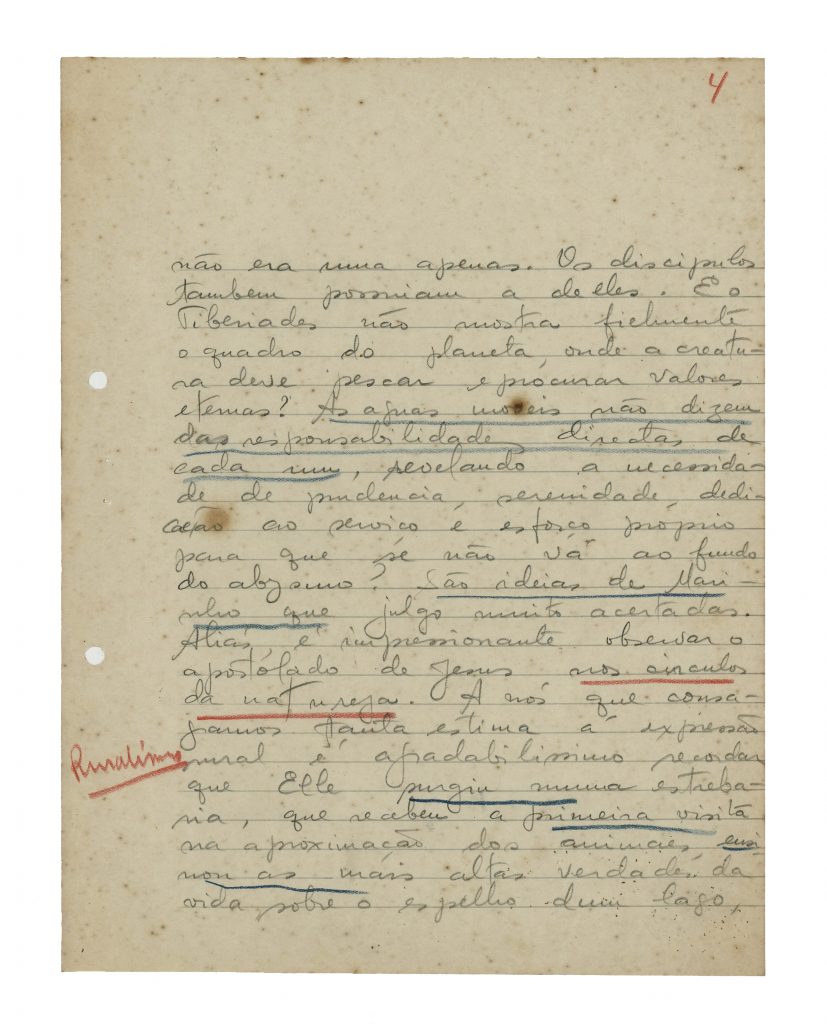 4
não era uma apenas. Os discipulos
tambem possuiam a delles. E o
Tiberiades não mostra fielmente
o quadro do planeta, onde a creatu-
ra deve pescar e procurar valores
eternas? As aguas moveis não dizem
das responsabilidade directas de
cada um, revelando a necessida-
de de prudencia, serenidade, dedi-
cação ao serviço e esforço próprio
para que se não vá ao fundo
do abysmo? São ideias de Mari-
nho que julgo muito acertadas.
Aliás, é impressionante observar o
apostolado de Jesus nos circulos
da natureza. A nós que consa-
gramos tanta estima á expressão
Ruralismo
rural é agradabilissimo recordar
que Elle surgiu numa estreba-
ria, que recebeu a primeira visita
na aproximação dos animaes, ensi-
nou as mais altas verdades da
vida sobre o espelho dum lago,